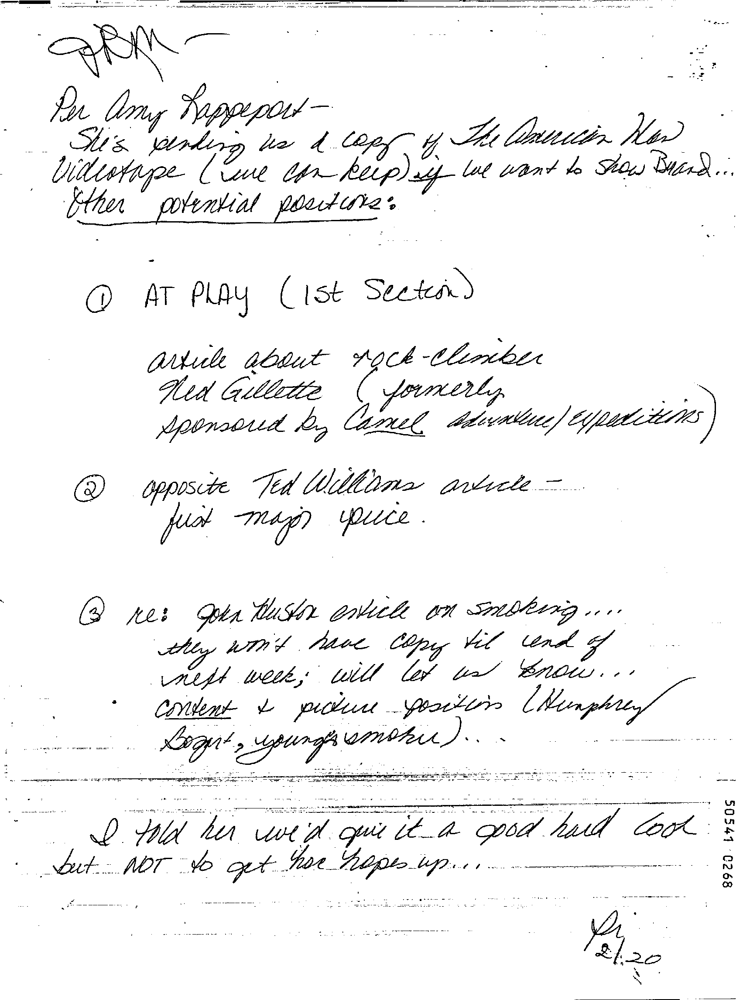 DRM -
Per Amy Rappeport -
She's sending us a copy of The American Man
Videotape (we can keep) if we want to show Brand...
Other potential positions:
① AT PLAY (1st Section)
article about rock-climber
Ned Gillette (formerly
sponsored by Camel adventure/expeditions)
② opposite Ted Williams article -
first major piece.
③ re: John Huston article on smoking....
they won't have copy til end of
next week; will let us know...
content & picture position (Humphrey
Bogart, younger smoker)...
I told her we'd give it a good hard look
but NOT to get her hopes up...
2/20
50541 0268